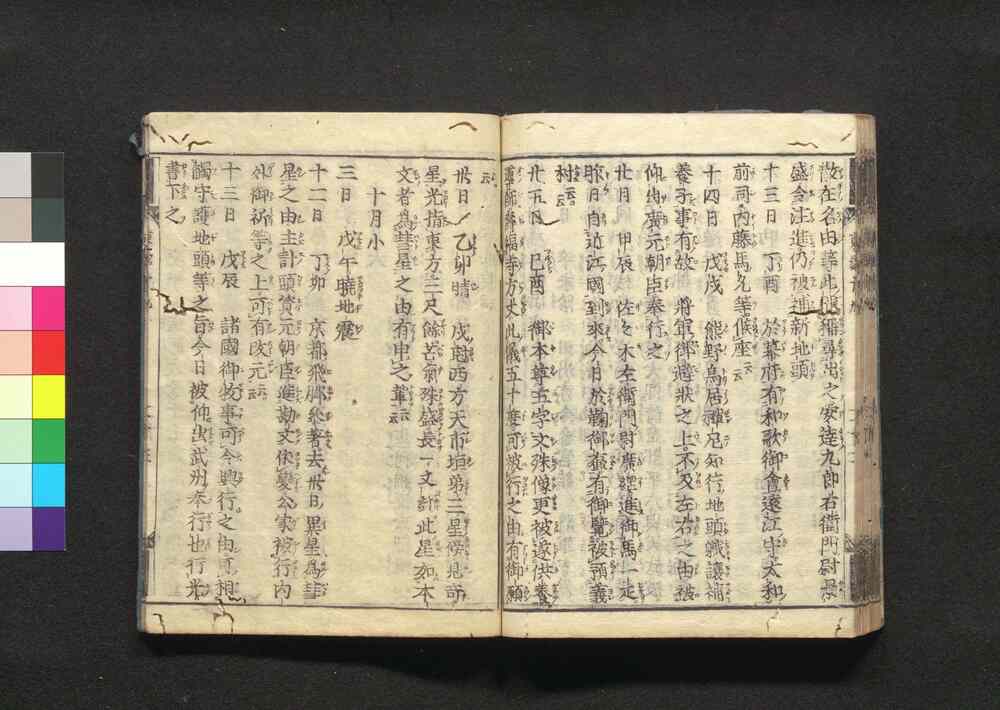 故在名由等此趣稱尋出之安達九郎右衛門尉景
盛令注進仍被補新地頭
十三日 丁酉 於幕府有和歌御會遠江守大和
前司内藤馬允等候座云云
十四日 戊戌 熊野鳥居禪尼知行地頭職讓補
養子事有故 將軍御還狀之上不及左右之由被
仰出廣元朝臣奉行之
廿日 甲辰 佐々木左衛門尉廣綱進御馬一疋
昨日自近江國到來今日於 御壺有御覽被預義
村云云
廿五日 己酉 御本尊五字文殊僧更被遂供養
導師壽福寺方丈此儀五十度可被行之由有御願
云云
卅日 乙卯晴 戌尅西方天市垣第三星傍見奇
星光指東方三尺餘芒氣殊盛長一丈許此星如本
文者爲彗星之由有申之輩云云
十月小
三日 戊午曉地震
十二日 丁卯 京都飛脚參著去卅日異星爲彗
星之由主計頭資元朝臣進勘文依變公家被行内
外御祈等之上可有改元云云
十三日 戊辰 諸國御牧事可令興行之由可相
觸守護地頭等之旨今日被仰出武州奉行也行光
書下之